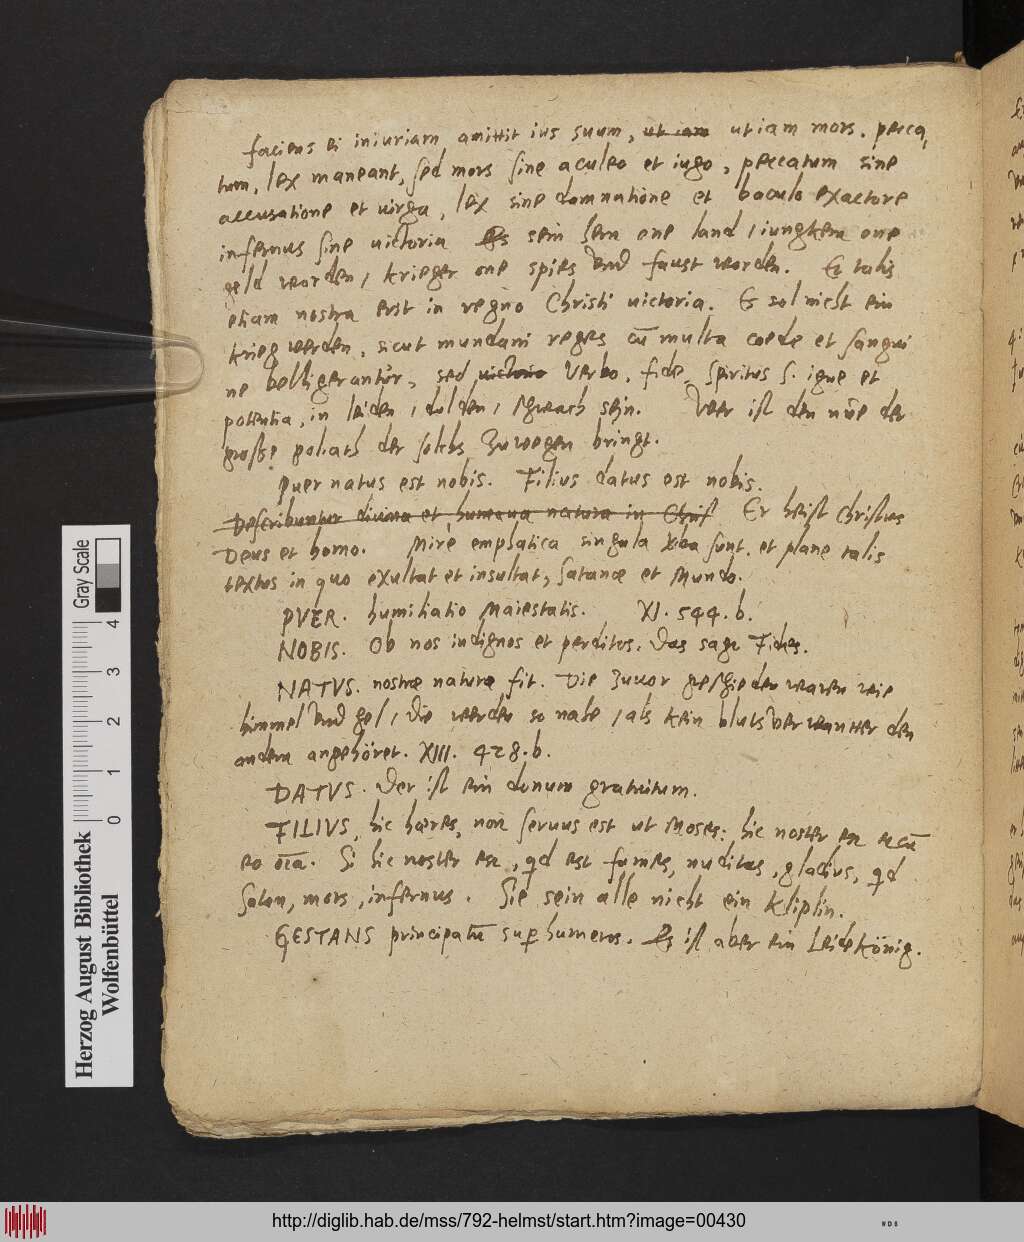 faciens ei iniuriam, amittit ius suum, ut iam ut iam mors, pecca,
tum, lex maneant, sed mors sine aculeo et iugo, peccatum sine
accusatione et uirga, lex sine damnatione et baculo exactore
infernus sine uictoria Es sein hern one land / iungkern one
geld worden / krieger one spies und faust worden. Et talis
etiam nostra erit in regno Christi uictoria. Es sol nicht ein
krieg werden, sicut mundani reges cū multa caede et sangui
ne belligerantur, sed uictoria Verbo, fide, Spiritus S. igne et
potentia, in leiden / dulden / schwach sein. Wer ist den nūe der
grosse goliath der solchs zuwegen bringt.
Puer natus est nobis. Filius datus est nobis.
Describuntur diuina et humana natura in Christ Er heist Christus
Deus et homo. Mire emphatica singula sunt, et plane talis
textus in quo exultat et insultat, Satanae et Mundo.
PVER. humiliatio Maiestatis. XI. 544. b.
NOBIS. Ob nos indignos et perditos. Das sage Fides.
NATVS. nostrae naturae fit. Die zuuor geschieden waren wie
himmel und hel / die werden so nahe / als kein bluts verwanter den
andern angehöret. XIII. 428. b.
DATVS. Der ist ein donum gratuitum.
FILIVS, hic haeres, non seruus est ut Moses: hic noster est et cū
eo oīa. Si hic noster est, qd est fames, nuditas, gladius, qd
Satan, mors, infernus. Sie sein alle nicht ein kliplin.
GESTANS principatū super humeros. Es ist aber ein Leidekönig.
Herzog August Bibliothek
Wolfenbüttel
Gray Scale
0 1 2 3 4
http://diglib.hab.de/mss/792-helmst/start.htm?image=00430